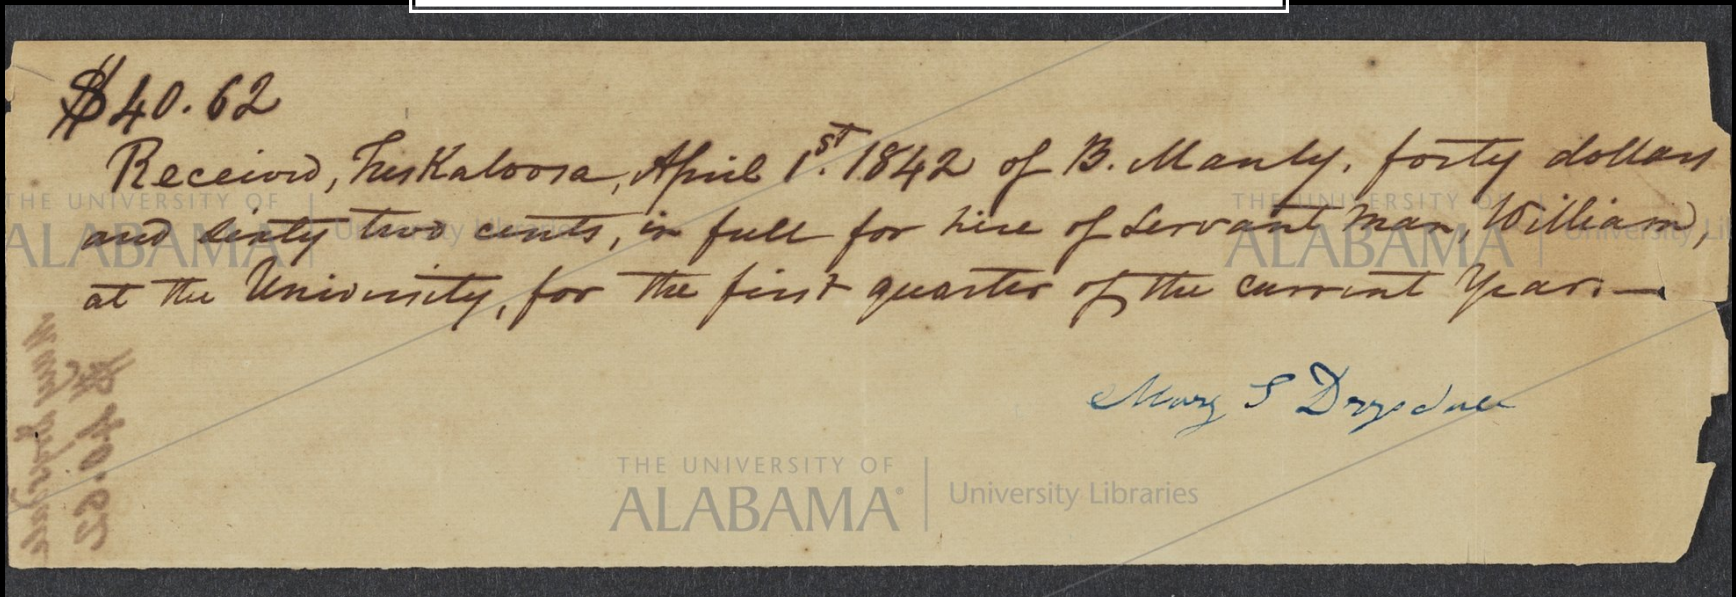 $40.62
Received, Tuskaloosa, April 1st. 1842 of B. Manly, forty dollars
and sixty two cents, in full for hire of servant man, William,
at the University, for the first quarter of the current Year.—
Mary S Drysdale
$40.62
THE UNIVERSITY OF
ALABAMA
University Libraries
THE UNIVERSITY OF
ALABAMA
University Li
THE UNIVERSITY OF
ALABAMA®
University Libraries